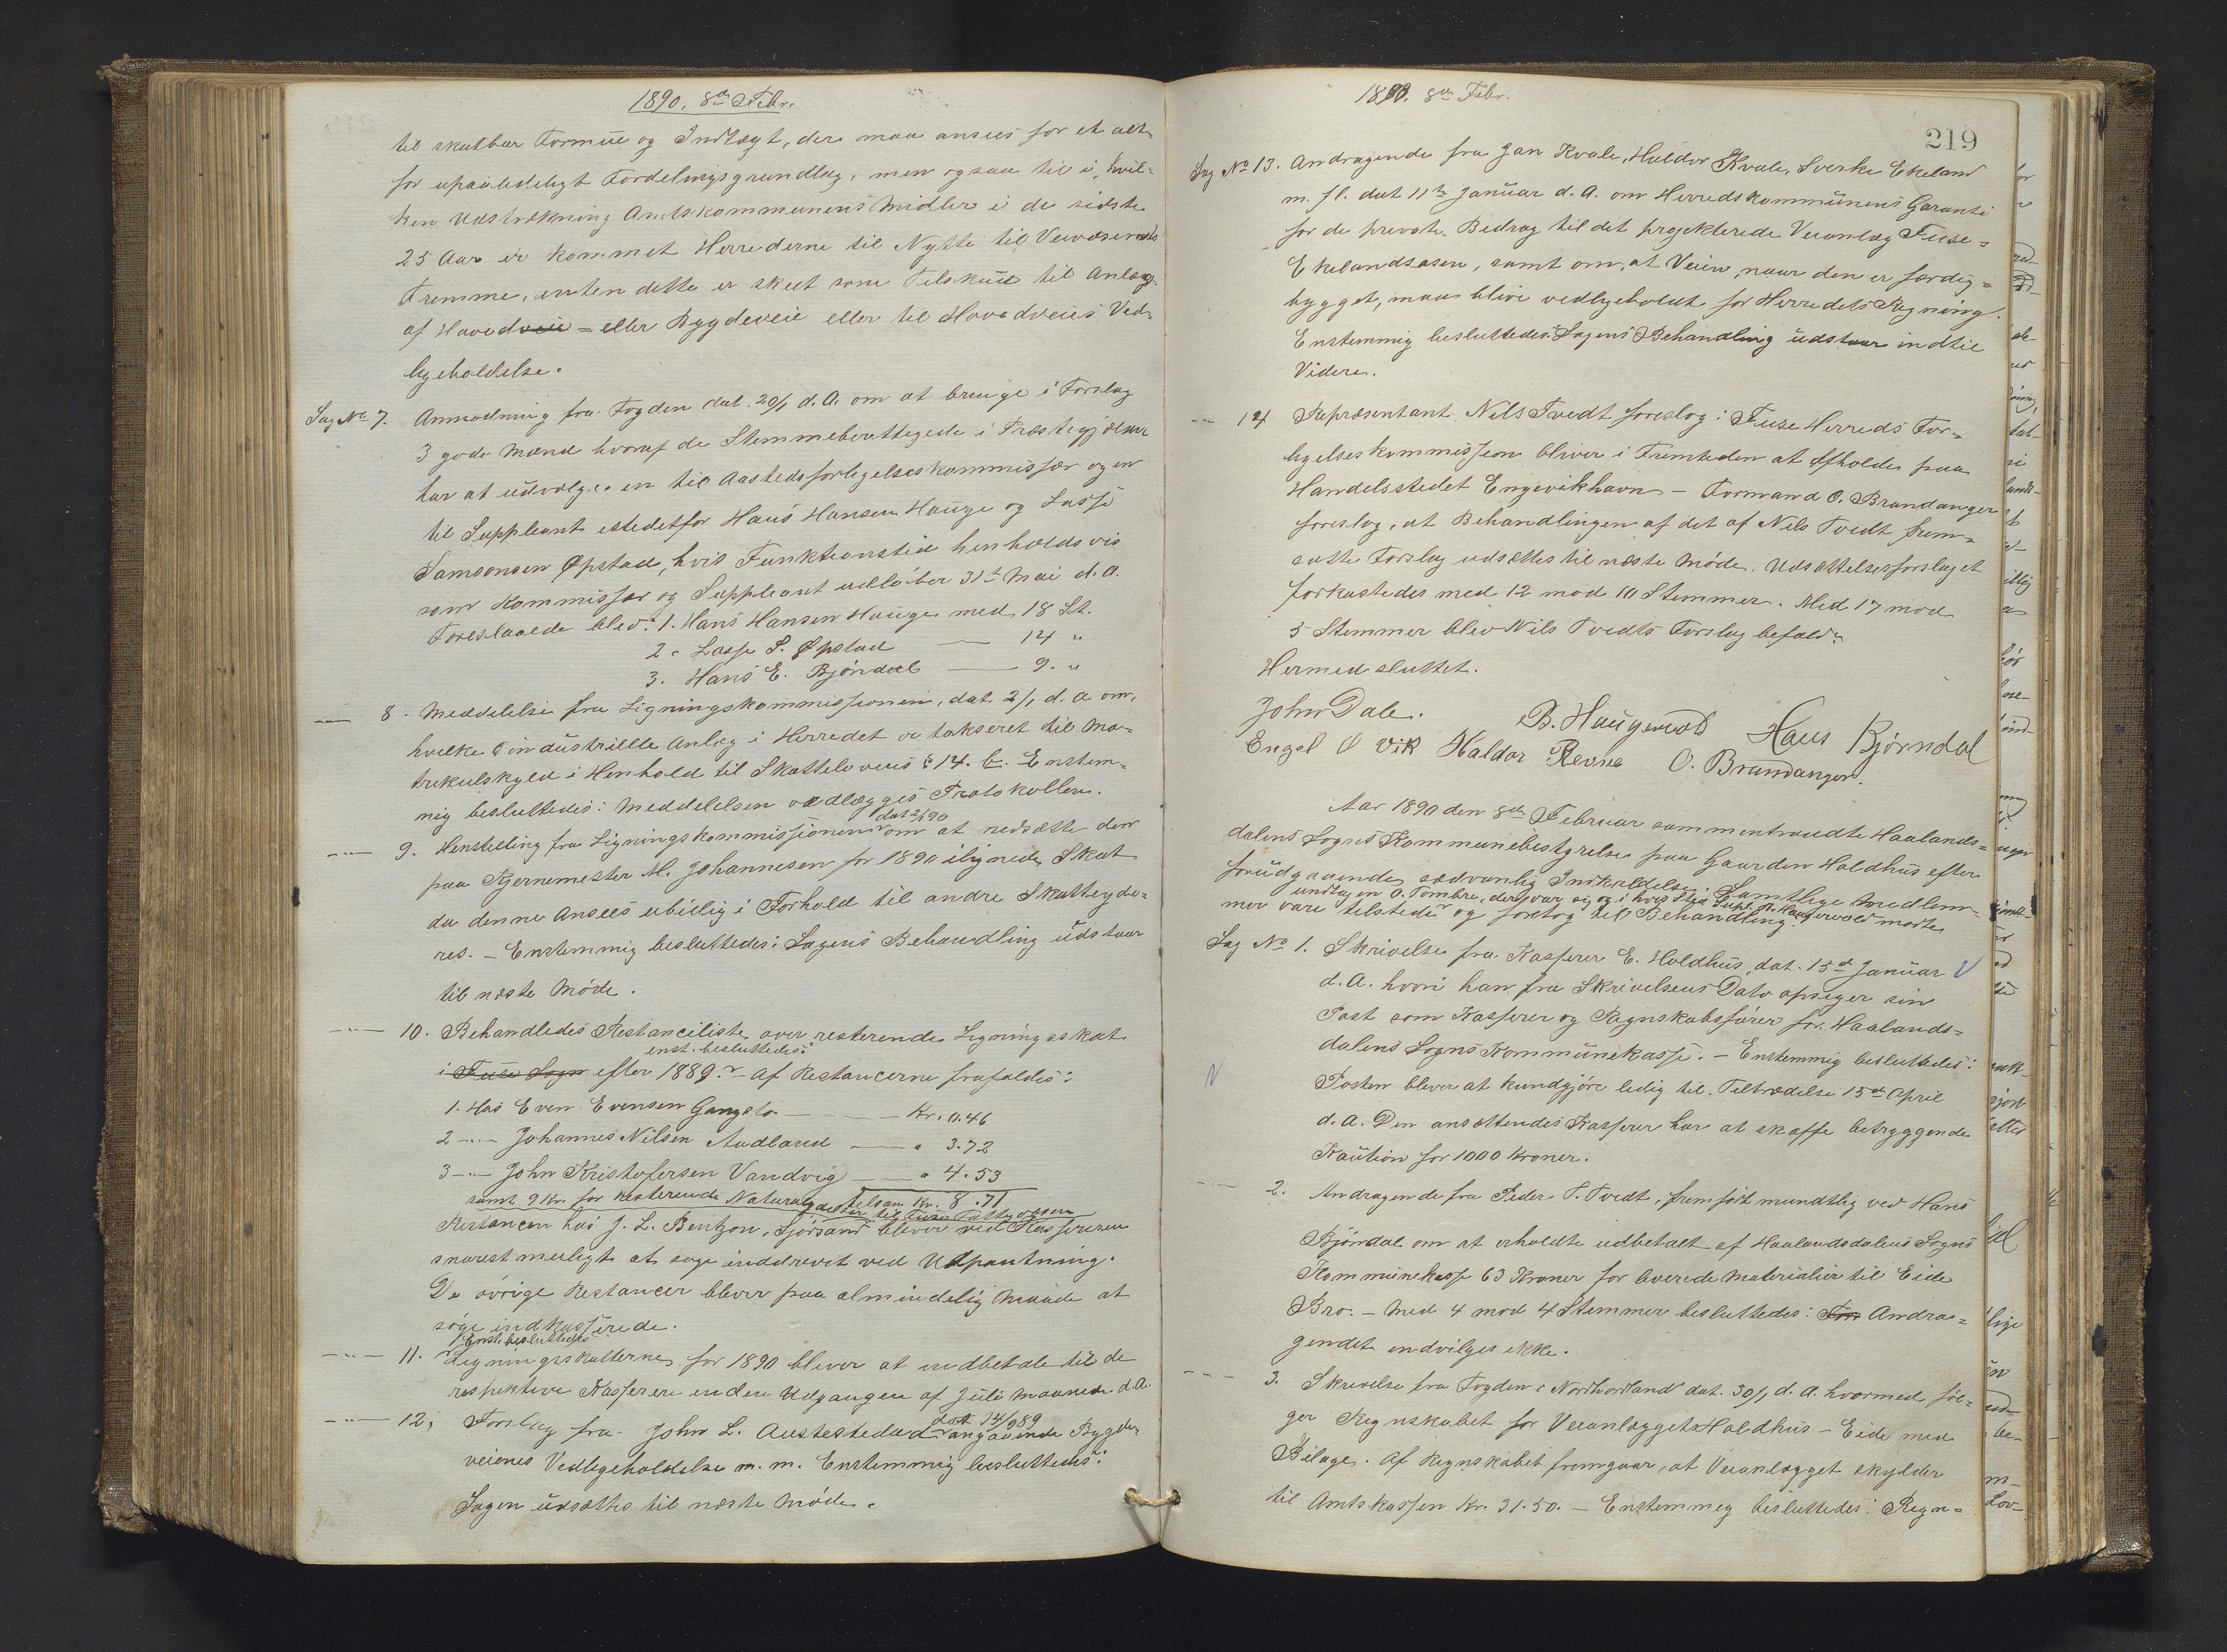 1890. 8de Febr.
til skatbar Formue og Indtægt, der maa ansees for et alt-
for upaalideligt Fordelingsgrundlag, men ogsaa til i, hvil-
ken Udstrækning Amtskommunens Midler i de sidste
25 Aar er kommet Herrederne til Nytte til Veivæsenets
Fremme, enten dette er skeet som Tilskud til Anlæg
af Hovedveie = eller Bygdeveie eller til Hovedveies Ved-
ligeholdelse.
Sag No 7. Anmodning fra Fogden dat. 20/1 d. A. om at bringe i Forslag
3 gode Mænd hvoraf de Stemmeberettigede i Præstegjeldet
har at udvælge en til Aastedsforligelseskommissær og en
til Suppleant istedetfor Hans Hansen Hauge og Lasse
Samsonsen Øpstad, hvis Funktionstid henholdsvis
som Kommissær og Suppleant udløber 31te Mai d. A.
Foreslaaede blev: 1. Hans Hansen Hauge med 18 St.
2. Lasse S. Øpstad — 14 "
3. Hans E. Bjørndal — 9. "
—"— 8. Meddelelse fra Ligningskommissionen, dat. 2/1 d. A. om,
hvilke industrielle Anlæg i Herredet er takseret til Ma-
trikulskyld i Henhold til Skattelovens § 14. b. Enstem-
mig besluttedes: Meddelelsen vedlægges Protokollen.
dat 2/1 90
—"— 9. Henstilling fra Ligningskommissionen om at nedsætte den
paa Gjernemester M. Johannesen for 1890 ilignede Skat
da denne ansees ubillig i Forhold til andre Skatteyde-
res. – Enstemmig besluttedes: Sagens Behandling udstaar
til næste Møde.
—"— 10. Behandledes Restanceliste over resterende Ligningsskat
enst. besluttedes:
i Fuse Sogn efter 1889. – Af Restancerne frafaldes:
1. Hos Even Evensen Gangstø — Kr. 0.46
2 —"— Johannes Nilsen Aadland — " 3.72
3 —"— John Kristofersen Vandvig — " 4.53
tilsam Kr. 8.71
samt 9 Kr. for resterende Naturalydelser til Fuse Fattigvæsen
Restancen hos J. L. Bentzon, Sjørsand bliver ved Kassereren
snarest muligt at søge inddrevet ved Udpantning.
De øvrige Restancer bliver paa almindelig Maade at
søge indkasserede.
Enst. besluttedes
—"— 11. Ligningsskatterne for 1890 bliver at indbetale til de
respektive Kasserere inden Udgangen af Juli Maaned d. A.
dat 14/9 89
—"— 12. Forslag fra John L. Austestad angaaende Bygde-
veienes Vedligeholdelse m. m. Enstemmig besluttedes:
Sagen udsættes til næste Møde.
1890. 8de Febr.
219
Sag No 13. Andragende fra Jan Kvale, Haldor Kvale, Sverke Ekeland
m. fl. dat 11te Januar d. A. om Herredskommunens Garanti
for de private Bidrag til det projekterede Veianlæg Fuse =
Ekelandsosen, samt om, at Veien, naar den er færdig=
bygget, maa blive vedligeholdt for Herredets Regning.
Enstemmig besluttedes: Sagens Behandling udstaar indtil
Videre.
—"— 14 Repræsentant Nils Tvedt foreslog: Fuse Herreds For-
ligelseskommission bliver i Fremtiden at afholde paa
Handelsstedet Engevikhavn – Formand O. Brandanger
foreslog, at Behandlingen af det af Nils Tvedt frem-
satte Forslag udsættes til næste Møde. Udsættelsesforslaget
forkastedes med 12 mod 10 Stemmer. Med 17 mod
5 Stemmer blev Nils Tvedts Forslag
Hermed sluttet.
John Dale. B. Haugervold Hans Bjørndal
Engel O Vik Haldor Revne O. Brandanger.
Aar 1890 den 8de Februar sammentraadte Haalands=
dalens Sogns Kommunebestyrelse paa Gaarden Holdhus efter
forudgaaende sædvanlig Indkaldelse. Samtlige Medlem-
undtagen O. Tombre, der var syg og i hvis Sted Supl. B. Haugervold mødte
mer vare tilstede og foretog til Behandling:
Sag No 1. Skrivelse fra Kasserer E. Holdhus, dat. 15de Januar
d. A. hvori han fra Skrivelsens Dato opsiger sin
Post som Kasserer og Regnskabsfører for Haalands=
dalens Sogns Kommunekasse. – Enstemmig besluttedes:
Posten bliver at kundgjøre ledig til Tiltrædelse 15de April
d. A. Den ansættendes Kasserer har at skaffe betryggende
Kaution for 1000 Kroner.
—"— 2. Andragende fra Peder T. Tvedt, fremført mundtlig ved Hans
Bjørndal om at erholdte udbetalt af Haalandsdalens Sogns
Kommunekasse 63 Kroner for leverede Materialier til Eide
Bro. – Med 4 mod 4 Stemmer besluttedes: Andra=
gendet indvilges ikke.
—"— 3. Skrivelse fra Fogden i Nordhordland dat. 30/1 d. A. hvormed føl-
ger Regnskabet for Veianlægget Holdhus – Eide med
Bilage. Af Regnskabet fremgaar, at Veianlægget skylder
til Amtskassen Kr. 31.50. – Enstemmig besluttedes: Regn=